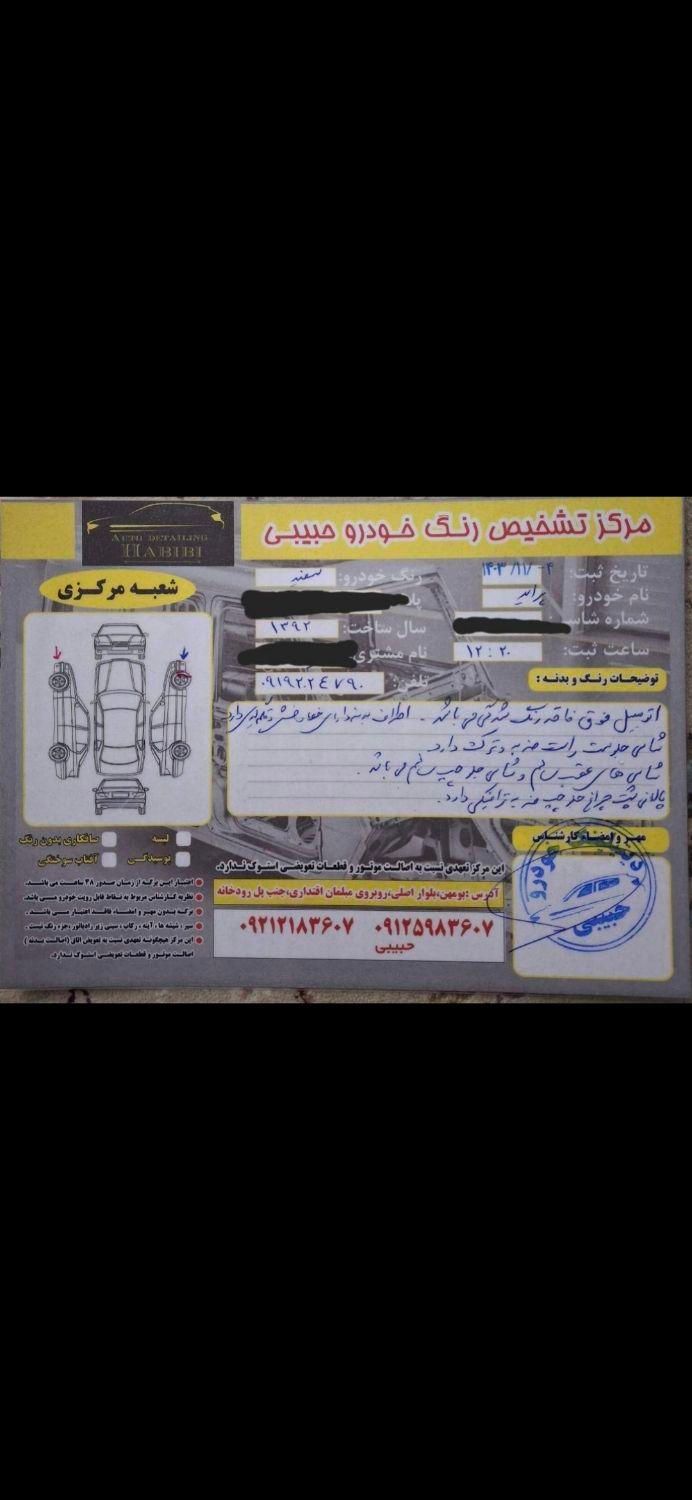 AUTO DETAILING
HABIBI
مرکز تشخیص رنگ خودرو حبیبی
شعبه مرکزی
تاریخ ثبت: ۱۴۰۳/۱۱/۰۴
رنگ خودرو: سفید
نام خودرو: پراید
پلا
شماره شاسـ
سال ساخت: ۱۳۹۲
ساعت ثبت: ۱۲:۲۰
نام مشتری:
تلفن: ۰۹۱۹۲۰۲٤۷۹۰
توضیحات رنگ و بدنه :
اتومبیل فوق فاقد رنگ شدگی می باشد. اطراف بدنه دارای خط و خش و لکه گیری دارد
شاسی جلو سمت راست ضربه و ترک دارد.
شاسی های عقب سالم و شاسی جلو چپ سالم می باشد.
پالانی پشت چراغ جلو چپ ضربه ترافیکی دارد.
لیسه
صافکاری بدون رنگ
پوسیدگی
آفتاب سوختگی
مهر و امضاء کارشناس
حبیبی
این مرکز تعهدی نسبت به اصالت موتور و قطعات تعویضی استوک ندارد.
آدرس :بومهن،بلوار اصلی،روبروی مبلمان اقتداری،جنب پل رودخانه
۰۹۱۲۵۹۸۳۶۰۷
۰۹۲۱۲۱۸۳۶۰۷
حبیبی
اعتبار این برگه از زمان صدور ۴۸ ساعت می باشد.
نظریه کارشناس مربوط به نقاط قابل رویت خودرو می باشد.
برگه بدون مهر و امضاء فاقد اعتبار می باشد.
سپر ، شیشه ها ، آینه ، رکاب ، سینی زیر رادیاتور ،جزء رنگ نیست .
این مرکز هیچگونه تعهدی نسبت به تعویض اتاق (اصالت بدنه )
اصالت موتور و قطعات تعویضی استوک ندارد.